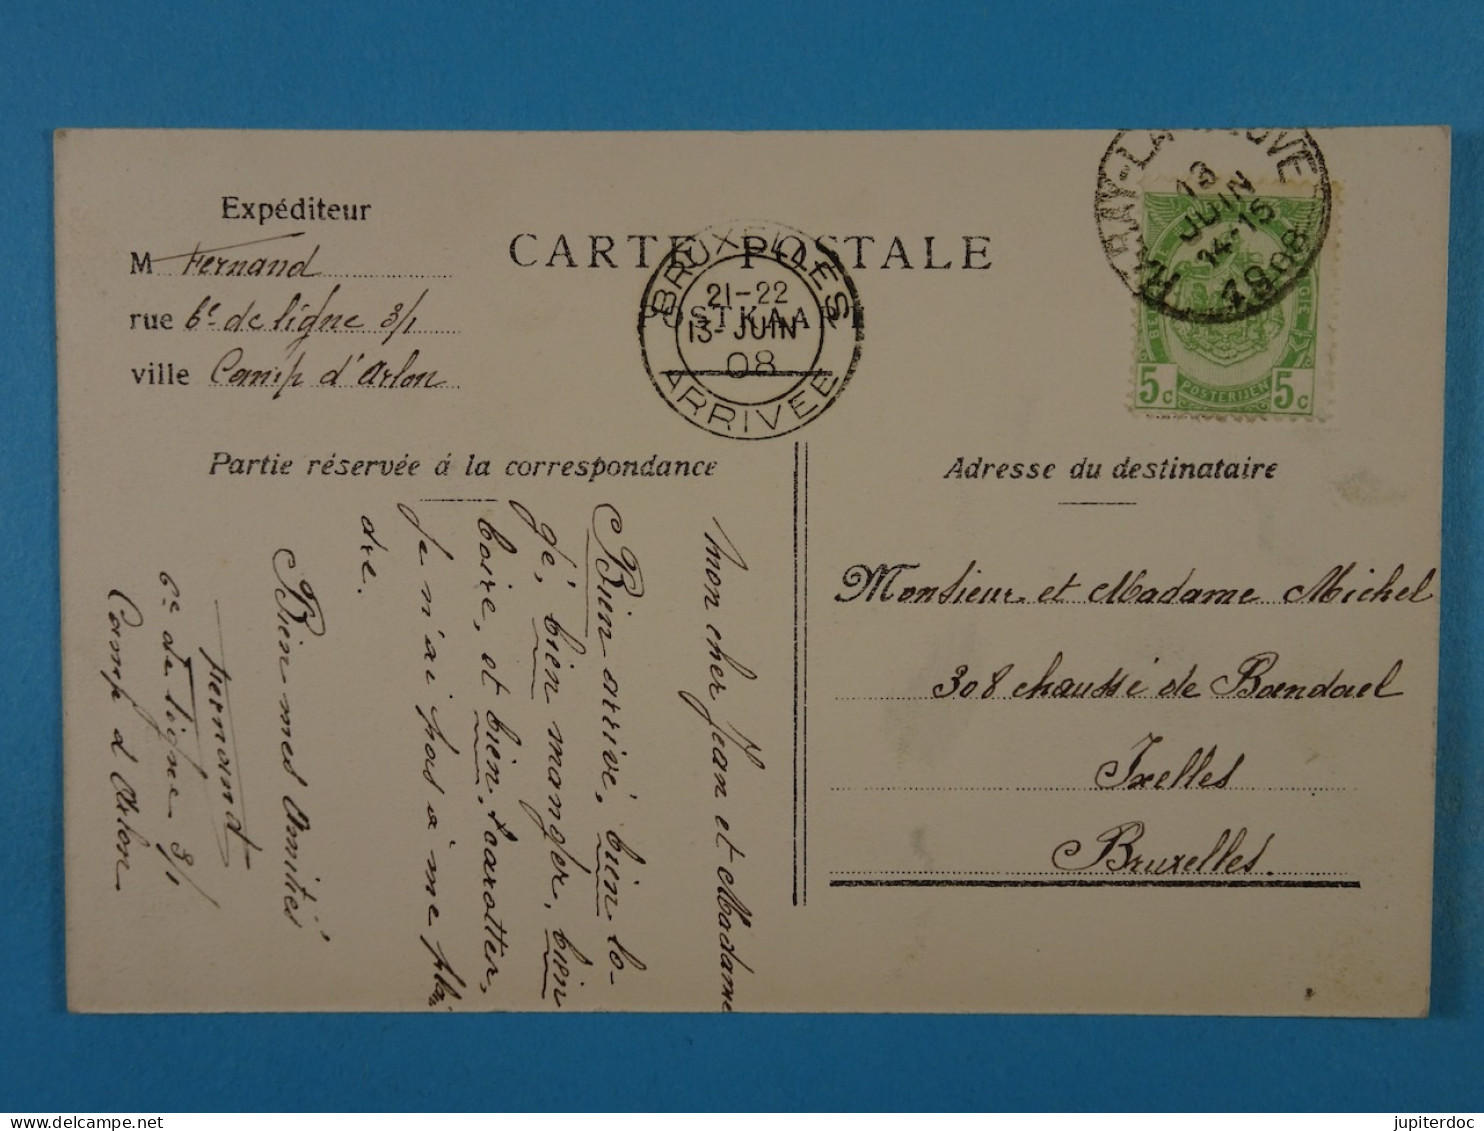 Expéditeur
M Fernand
rue 6e de ligne 3/1
ville Camp d'Arlon
CARTE POSTALE
POSTKAART
BRUXELLES
21-22
13-JUIN
08
ARRIVEE
13
JUIN
14-15
1908
5c POSTERIJEN 5c
Partie réservée á la correspondance
mon cher Jean et Madame
Bien arrivé, bien lo-
gé, bien manger, bien
boire, et bien carotter,
Je n'ai pas a me plai
dre.
Bien mes Amitiés
Fernand
6e de ligne 3/1
Camp d'Arlon
Adresse du destinataire
Monsieur et Madame Michel
308 chaussé de Bœndael
Ixelles
Bruxelles.
jupiterdoc